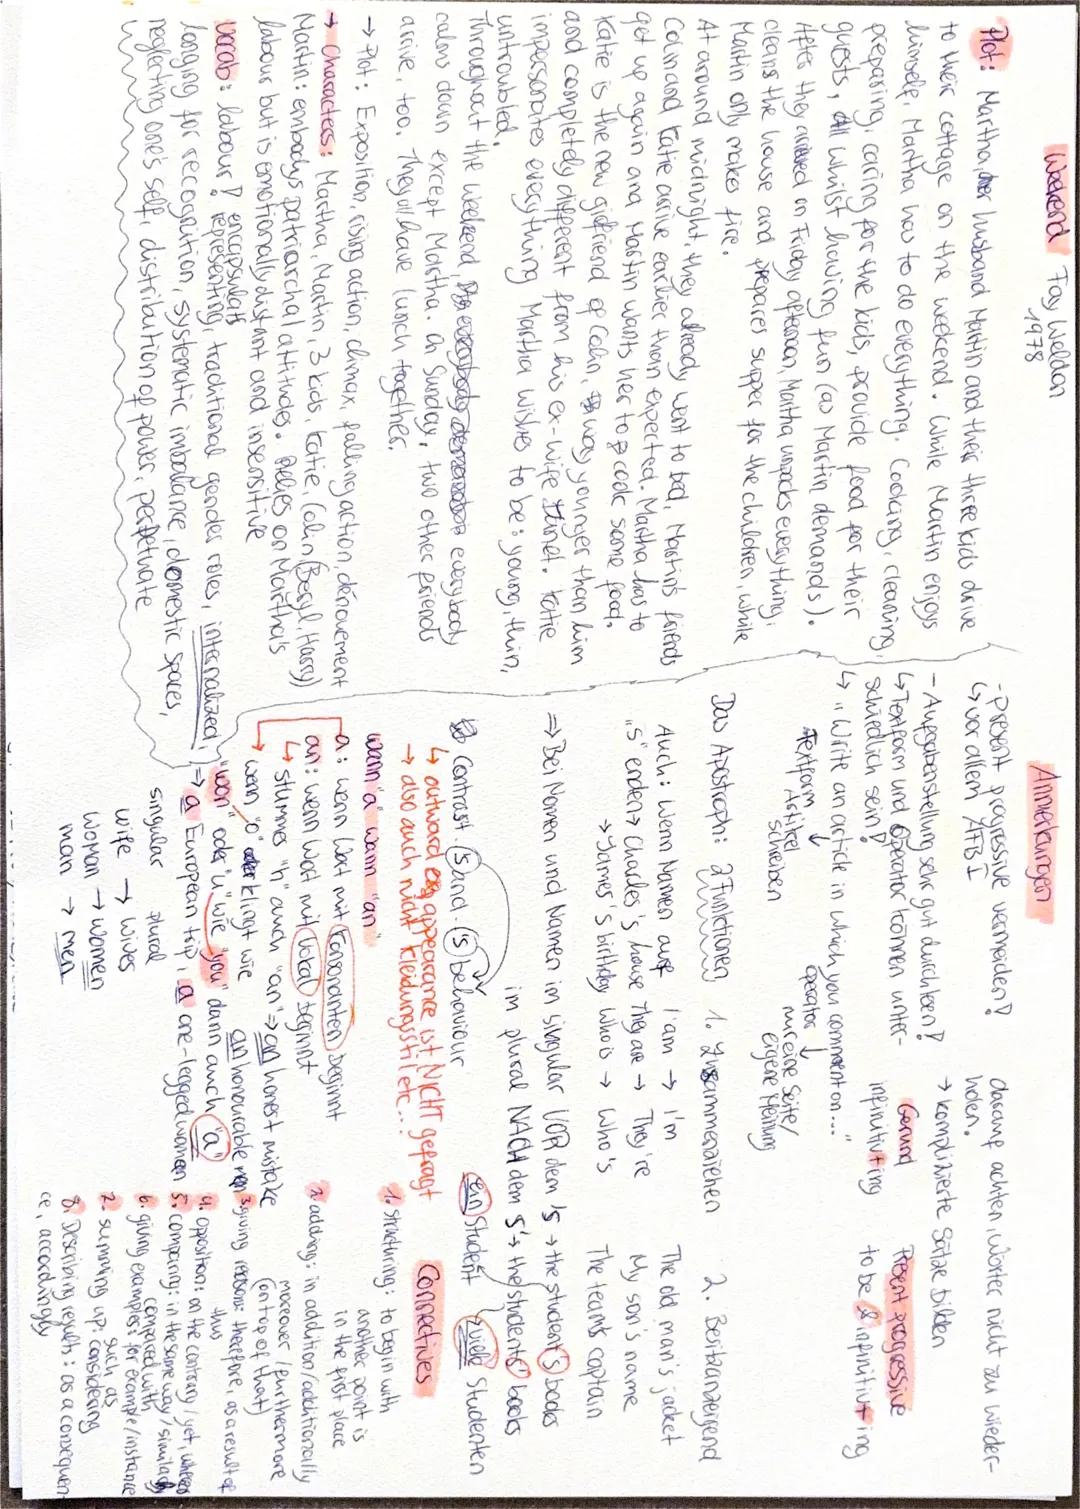 Weekend Fay Weldon
1978
Plot: Martha, her husband Martin and their three kids drive
to their cottage on the weekend. While Martin enjoys
himself, Martha has to do everything. Cooking, cleaning,
preparing, caring for the kids, provide food for their
guests, all whilst having fun (as Martin demands).
After they arrived on Friday afternoon, Martha unpacks everything,
cleans the house and prepares supper for the children, while
Martin only makes fire.
At around midnight, they already went to bed, Martin's friends
Colin and Katie arrive earlier than expected. Martha has to
get up again and Martin wants her to cook some food.
Katie is the new girlfriend of Colin, way younger than him
and completely different from his ex-wife Janet. Katie
impersonates everything Martha wishes to be: young, thin,
untroubled.
Throughout the weekend, everybody
calms down except Martha. On Sunday, two other friends
arrive, too. They all have lunch together.
→ Plot: Exposition, rising action, climax, falling action, dénouement
→ Characters: Martha, Martin, 3 kids, Katie, Colin (Beryl, Harry)
Martin: embodys patriarchal attitudes. Relies on Martha's
labour but is emotionally distant and insensitive
Vocab: labour! encapsulate
representing, traditional gender roles, internalized,
longing for recognition, systematic imbalance, domestic spaces,
neglecting one's self, distribution of power, perpetuate
Anmerkungen
- present progressive vermeiden!
↳ vor allem AFB I
- Aufgabenstellung sehr gut durchlesen!
↳ Textform und Operator können unter-
schiedlich sein!
↳ "Write an article in which you comment on..."
Textform Operator
↳ Artikel schreiben
nur eine Seite/
eigene Meinung
darauf achten Wörter nicht zu wieder-
holen.
→ komplizierte Sätze bilden
Gerund Present progressive
infinitiv+ing to be & infinitiv+ing
Das Apostroph: 2 Funktionen 1. Zusammenziehen 2. Besitzanzeigend
Auch: Wenn Namen auf I am → I'm The old man's jacket
"s" enden → Charles's house They are → They're My son's name
→ James's birthday Who is → Who's The team's captain
⇒ Bei Nomen und Namen im singular VOR dem 's → the student's books
im plural NACH dem s' → the students' books
ein Student viele Studenten
Contrast (s) and (s) behaviour
↳ outward appearance ist NICHT gefragt
→ also auch nicht Kleidungsstil etc...
Wann "a" wann "an"
a: wenn Wort mit Konsonanten beginnt
an: wenn Wort mit Vokal beginnt
↳ stummes "h" auch "an" ⇒ an honest mistake
an honourable man
→ wenn "o" klingt wie
"won" oder "u" wie "you" dann auch "a"
⇒ a European trip, a one-legged women
singular plural
wife → wives
woman → women
man → men
Connectives
1. structuring: to begin with
another point is
in the first place
2. adding: in addition/additionally
moreover/furthermore
(on top of that)
3. giving reasons: therefore, as a result of
thus
4. opposition: on the contrary/yet, whereas
5. comparing: in the same way/similarly
compared with
6. giving examples: for example/instance
such as
7. summing up: considering
8. Describing results: as a consequen-
ce, accordingly